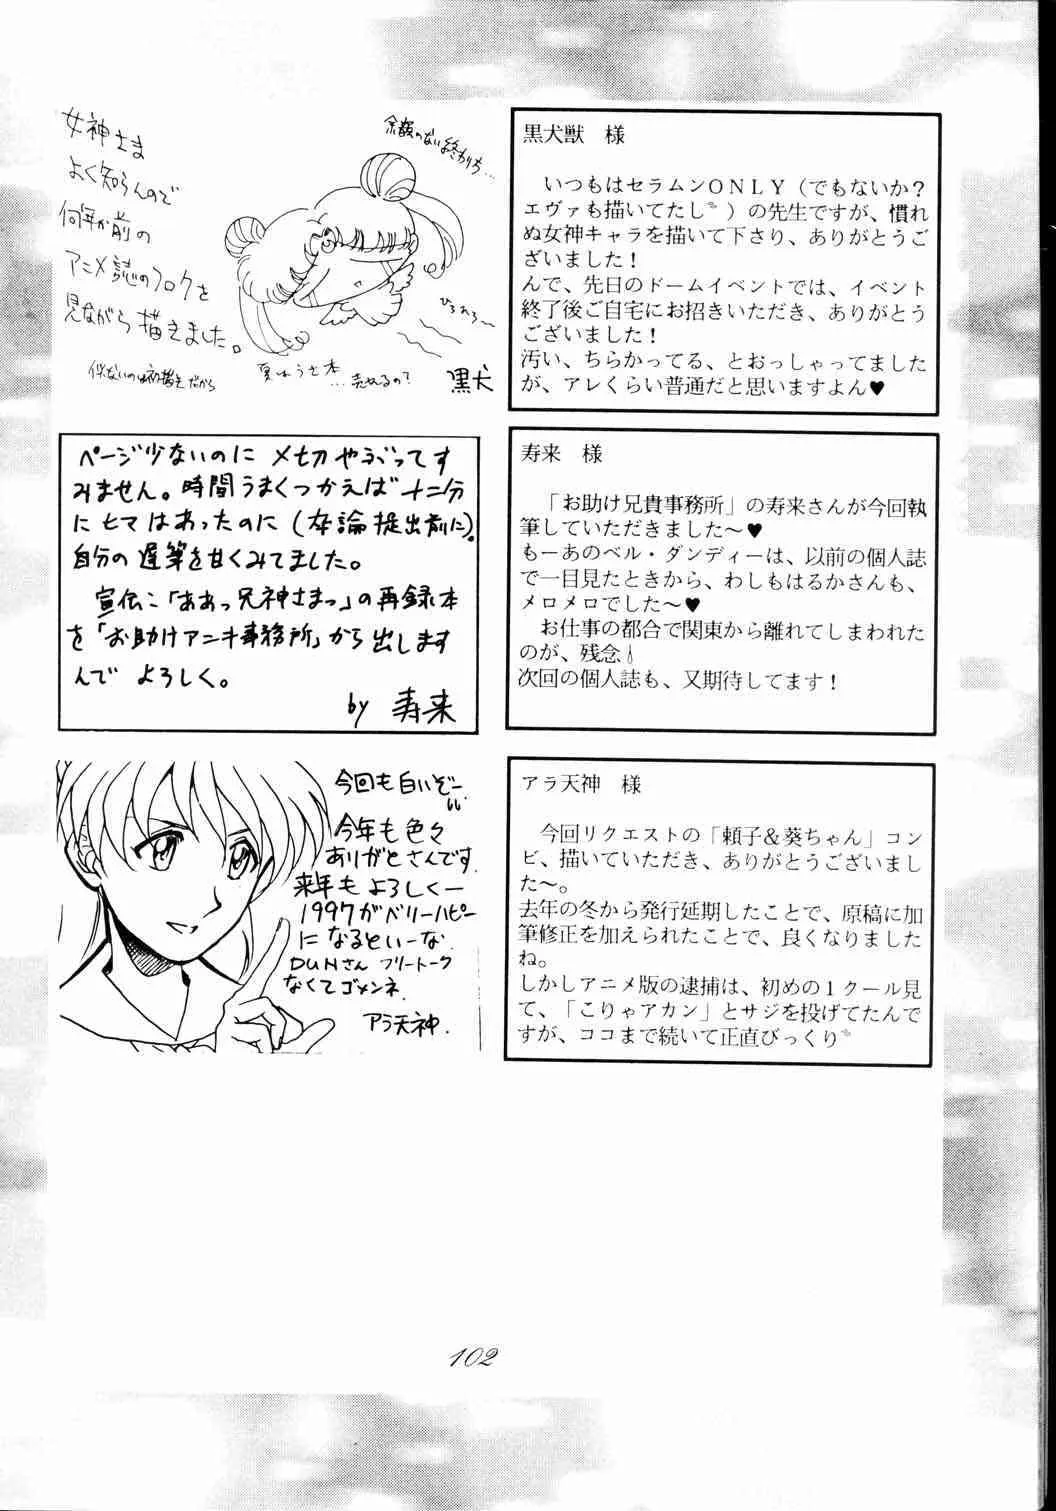 女神さま
よく知らんので
何年か前の
アニメ誌のフロクを
見ながら描きました。
似ないのは初描きだから
余裕のない終わりち…
ひろろろ〜
…売れるの?
黒犬
黒犬獣 様
いつもはセラムンONLY(でもないか?
エヴァも描いてたし)の先生ですが、慣れ
ぬ女神キャラを描いて下さり、ありがとうご
ざいました!
んで、先日のドームイベントでは、イベント
終了後ご自宅にお招きいただき、ありがとう
ございました!
汚い、ちらかってる、とおっしゃってました
が、アレくらい普通だと思いますよん♥
ページ少ないのに〆切やぶってす
みません。時間うまくつかえば十二分
にヒマはあったのに(卒論提出前に)。
自分の遅筆を甘くみてました。
宣伝:「ああっ兄神さまっ」の再録本
を「お助けアニキ事務所」から出します
んで よろしく。
by 寿来
寿来 様
「お助け兄貴事務所」の寿来さんが今回執
筆していただきました〜♥
もーあのベル・ダンディーは、以前の個人誌
で一目見たときから、わしもはるかさんも、
メロメロでした〜♥
お仕事の都合で関東から離れてしまわれた
のが、残念
次回の個人誌も、又期待してます!
今回も白いぞー
今年も色々
ありがとさんです
来年もよろしくー
1997がベリーハピー
になるといーな
DUNさん フリートーク
なくてゴメンネ
アラ天神.
アラ天神 様
今回リクエストの「頼子&葵ちゃん」コン
ビ、描いていただき、ありがとうございまし
た〜。
去年の冬から発行延期したことで、原稿に加
筆修正を加えられたことで、良くなりました
ね。
しかしアニメ版の逮捕は、初めの1クール見
て、「こりゃアカン」とサジを投げてたんで
すが、ココまで続いて正直びっくり
102